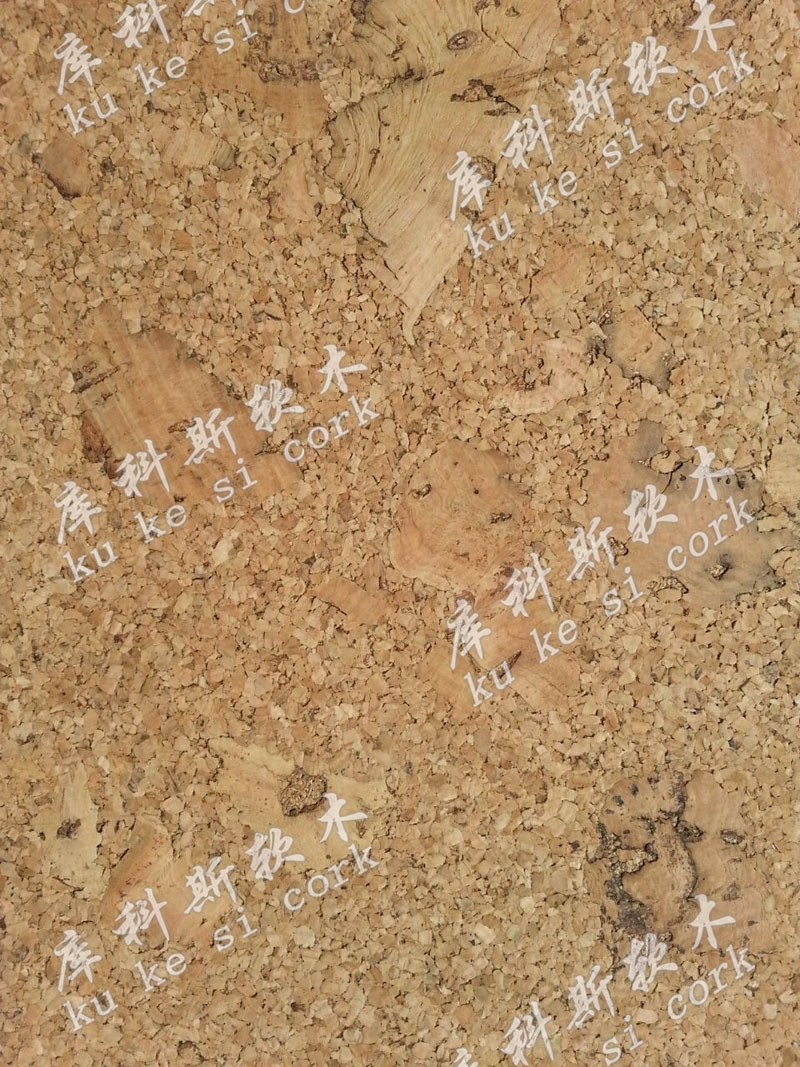 库科斯软木
ku ke si cork
库科斯软木
ku ke si cork
库科斯软木
ku ke si cork
库科斯软木
ku ke si cork
库科斯软木
ku ke si cork
库科斯软木
si cork